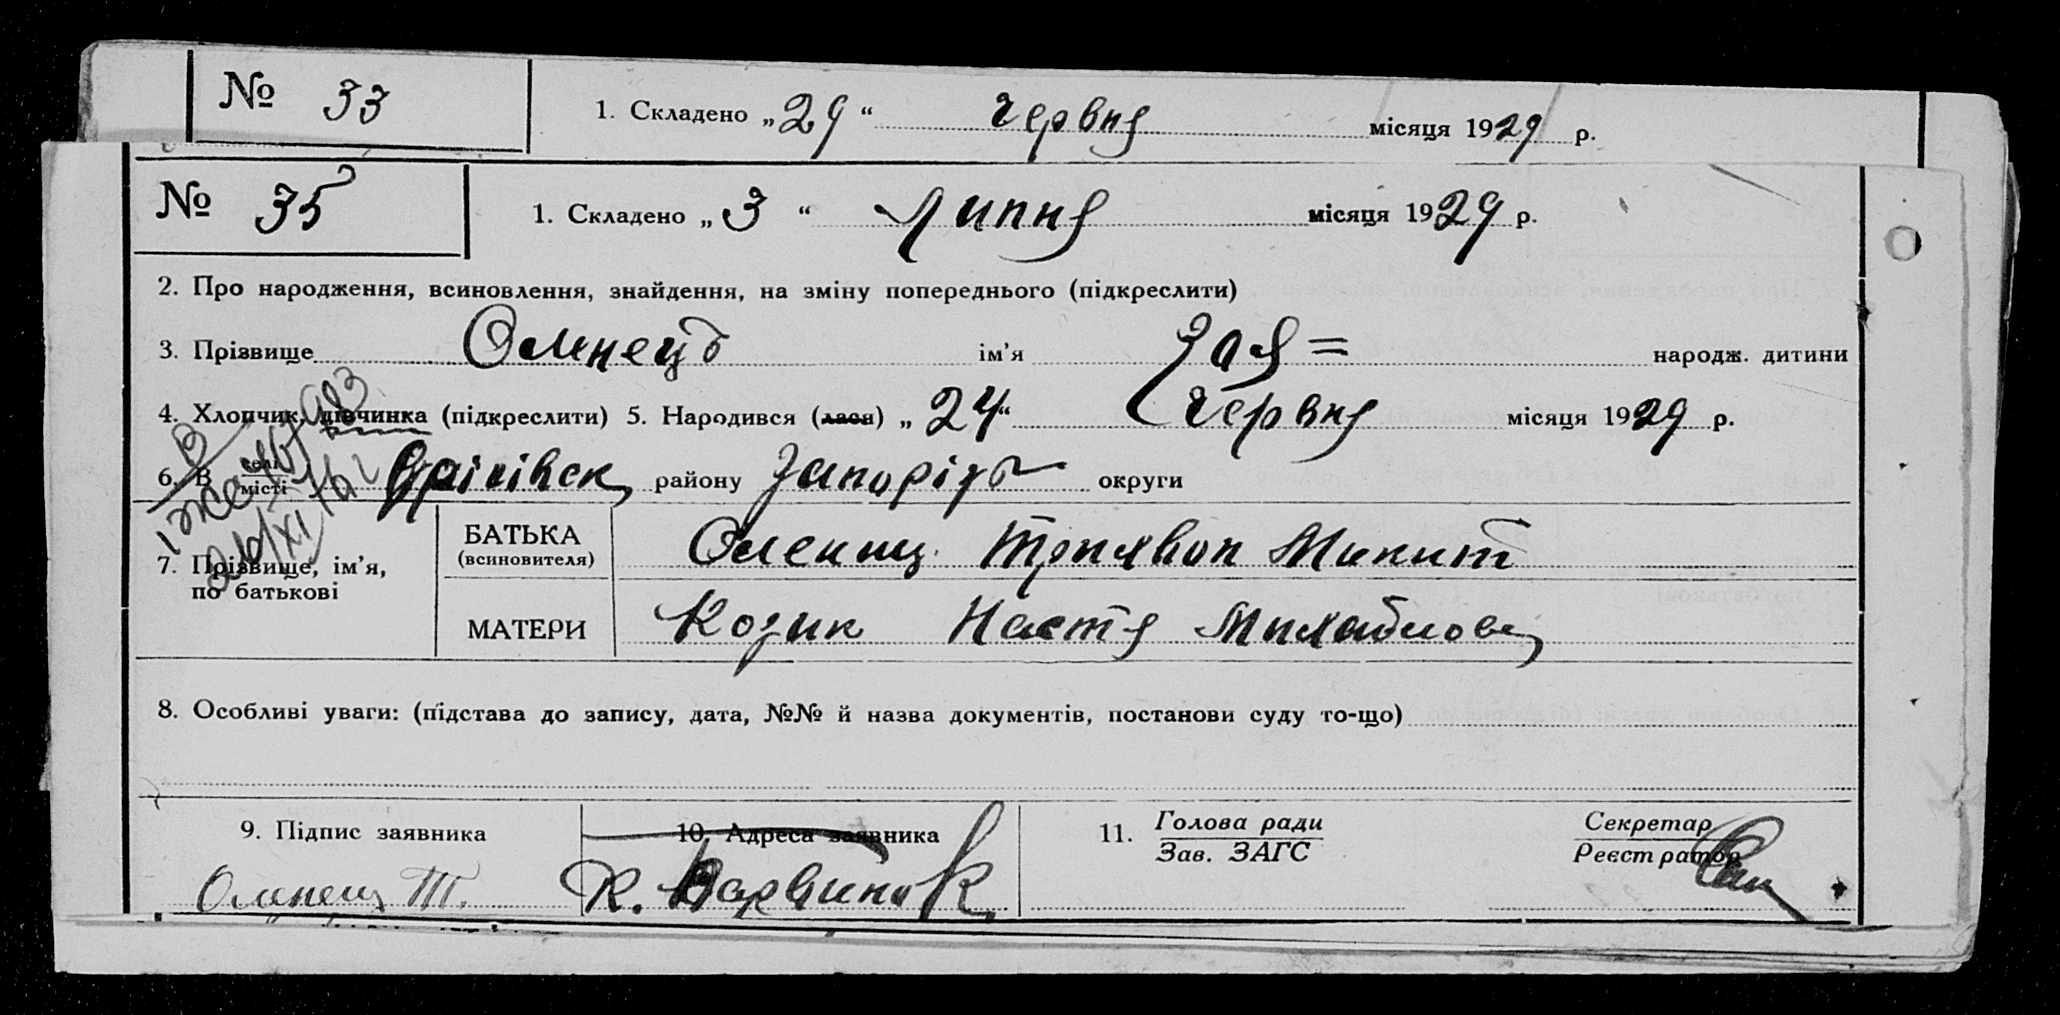 № 33 1. Складено „29“ червня місяця 1929 р.
№ 35 1. Складено „3“ липня місяця 1929 р.
2. Про народження, всиновлення, знайдення, на зміну попереднього (підкреслити)
3. Прізвище ім'я Зая = народж. дитини
4. Хлопчик, дівчинка (підкреслити) 5. Народився (лася) „24“ червня місяця 1929 р.
6. В селі місті району Запорізь округи
7. Прізвище, ім'я, по батькові
БАТЬКА (всиновителя) Микит
МАТЕРИ Козик Настя Михайлова
8. Особливі уваги: (підстава до запису, дата, №№ й назва документів, постанови суду то-що)
9. Підпис заявника 10. Адреса заявника 11. Голова ради Секретар
Зав. ЗАГС Реєстратор
Т. К.